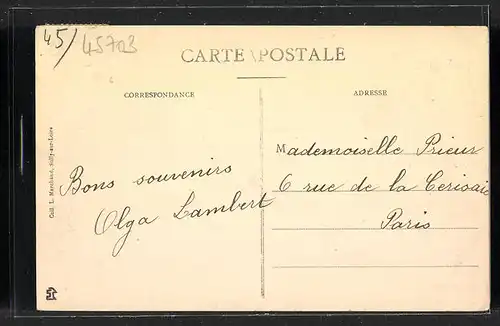 45/
45703
CARTE POSTALE
CORRESPONDANCE
ADRESSE
Coll. L. Marchand, Sully-sur-Loire
Bons souvenirs
Olga Lambert
Mademoiselle Prieur
6 rue de la Cerisaie
Paris